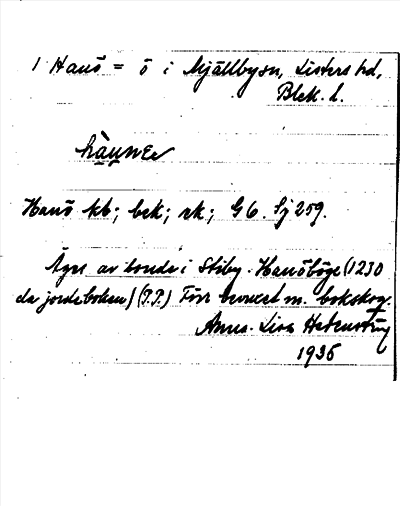 1 Hanö = ö i Mjällbysn, Listers hd,
Blek. l.
Hanö kb; bek; rk; G6. Sj 259.
Äges av bonde i Stiby. Hanöböge (1230
da jordeboken) (P.T.) Förr bevuxet m. bokskog.
Anna-Lisa Hedenström
1935